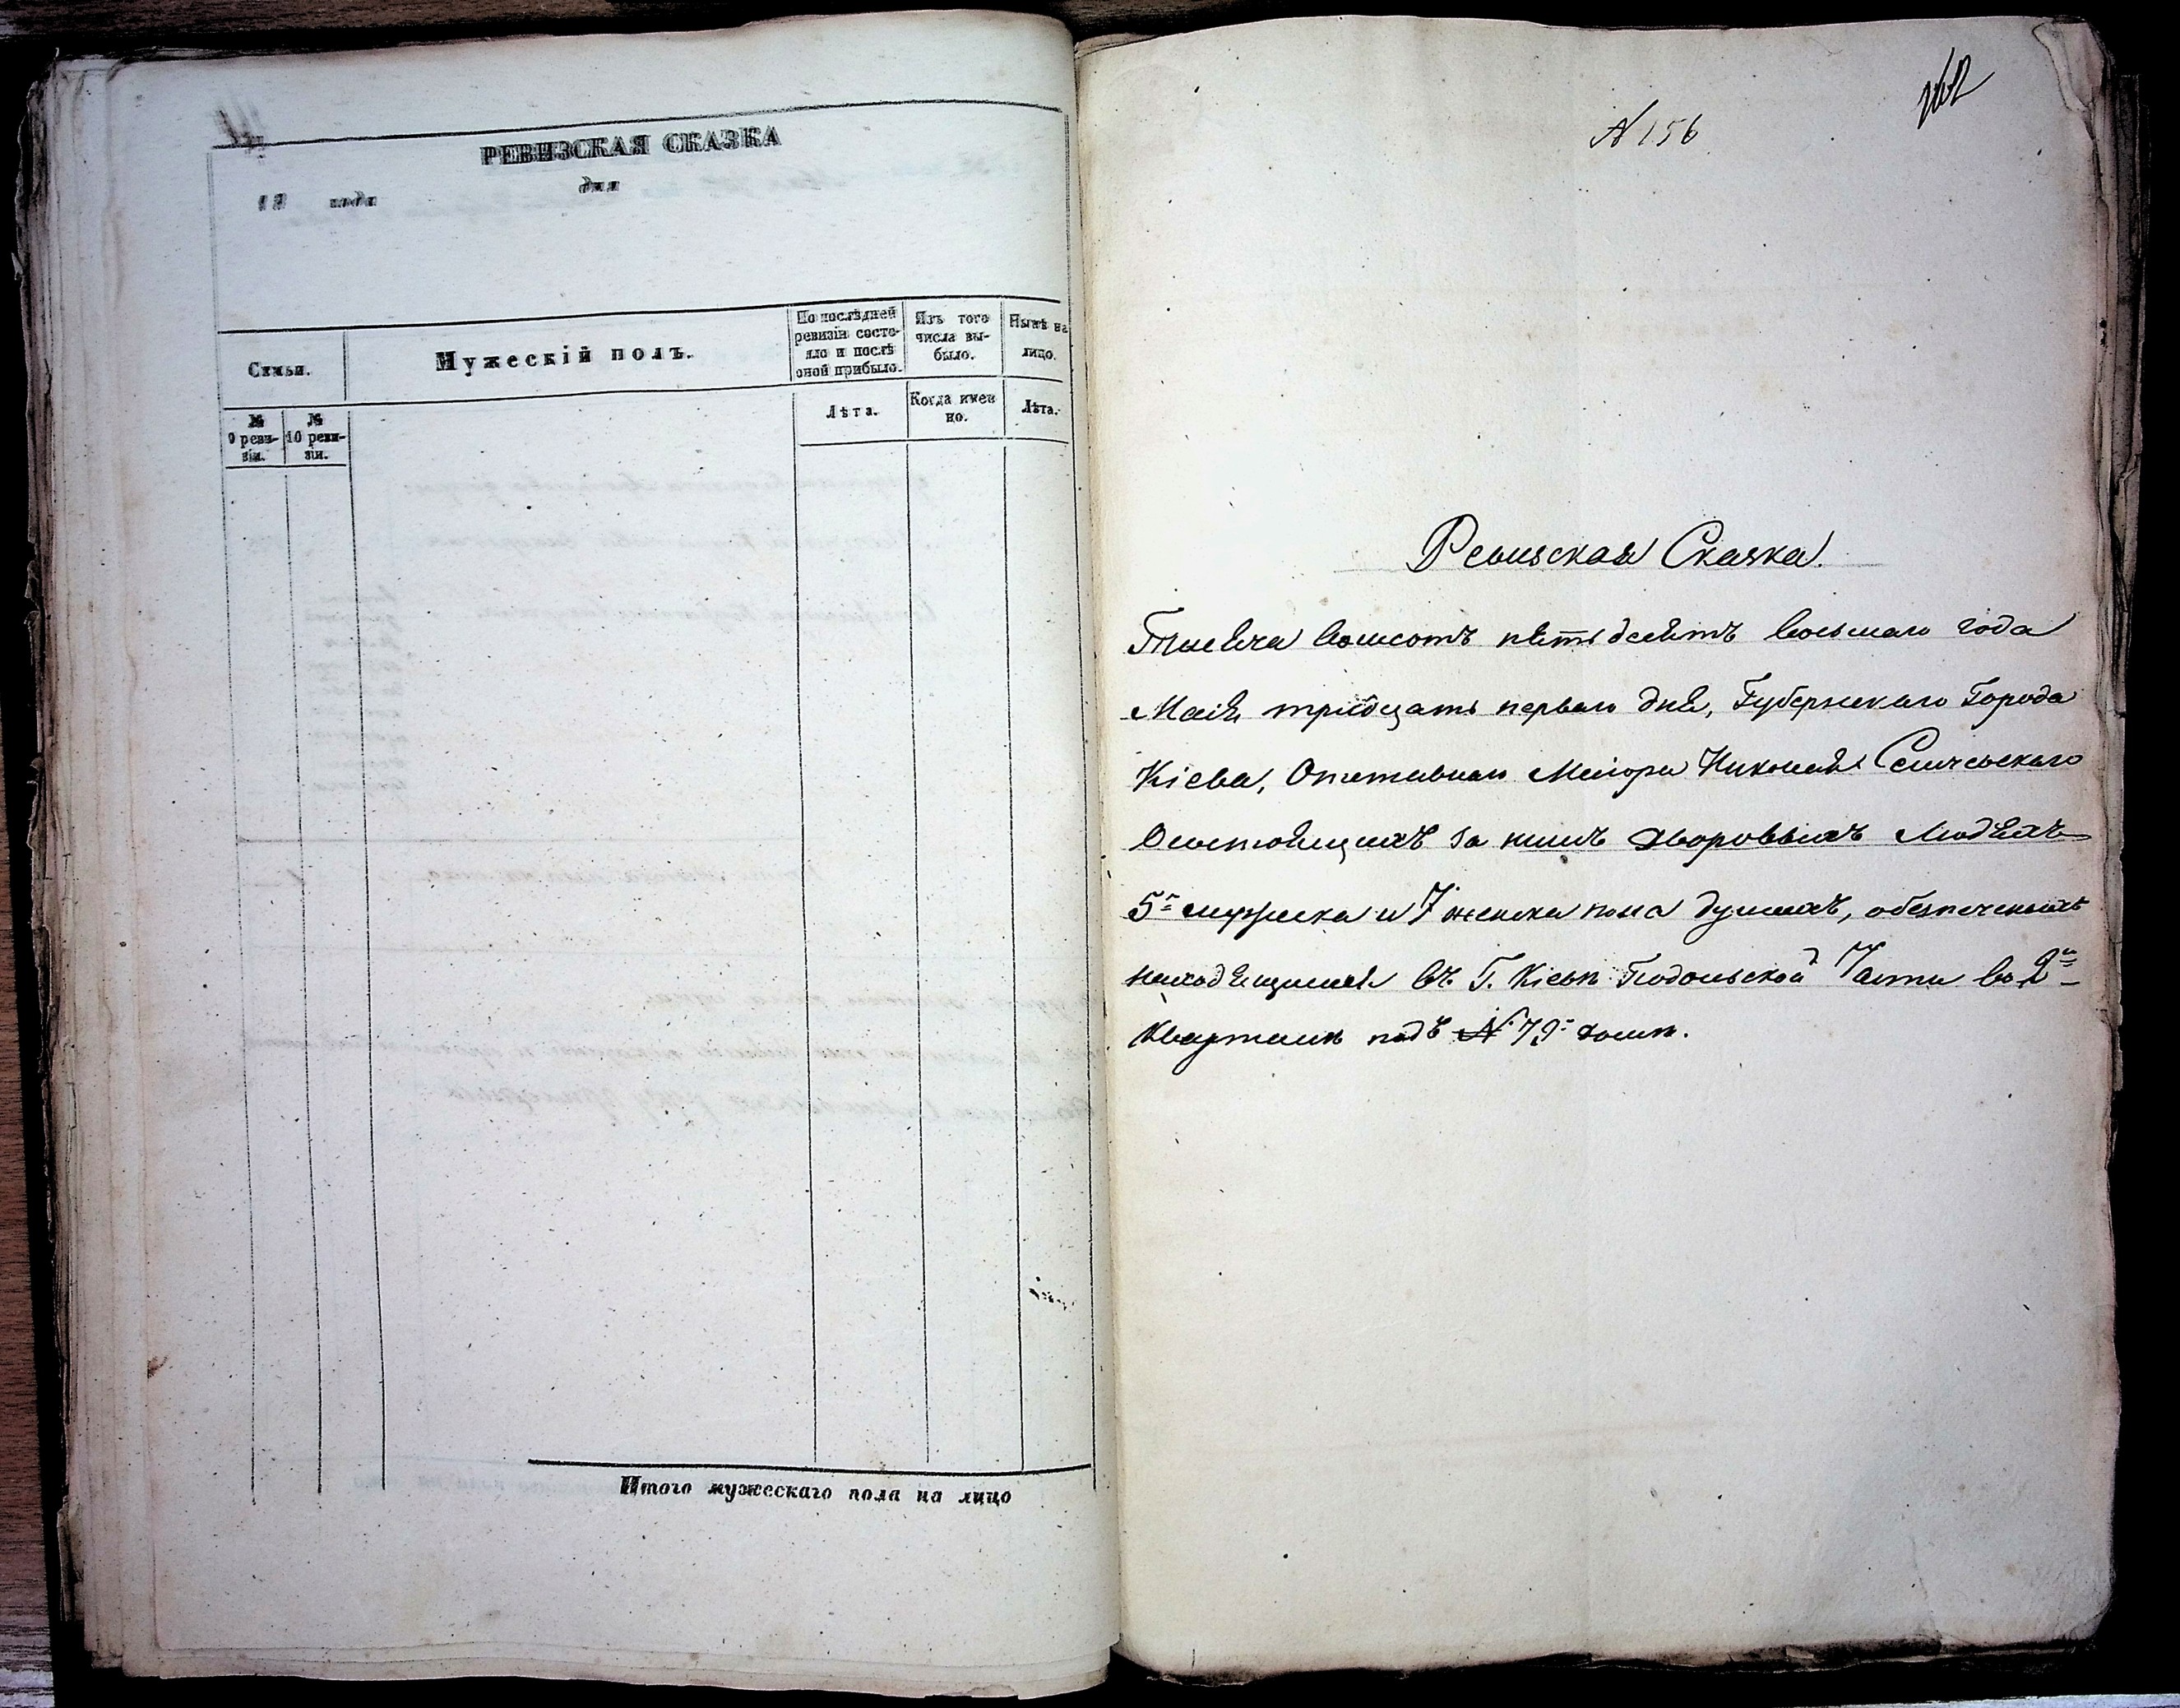 РЕВИЗСКАЯ СКАЗКА
18 года дня
Семьи.
Мужескій полъ.
По послѣдней ревизіи состояло и послѣ оной прибыло.
Изъ того числа выбыло.
Нынѣ на лицо.
№ 9 ревизіи.
№ 10 ревизіи.
Лѣта.
Когда именно.
Лѣта.
Итого мужескаго пола на лицо
N 156
Ревизская Сказка.
Тысяча восмсотъ пятьдесятъ восьмаго года
Маія тридцать перваго дня, Губернскаго Города
Кіева, Отставнаго Маіора Николая
О состоящихъ за нимъ дворовыхъ людяхъ
5ъ мужеска и 7 женска пола душахъ, обезпеченныхъ
находящимся въ Г. Кіевѣ Подольской Части во 2мъ
Кварталѣ подъ N 79ъ домѣ.